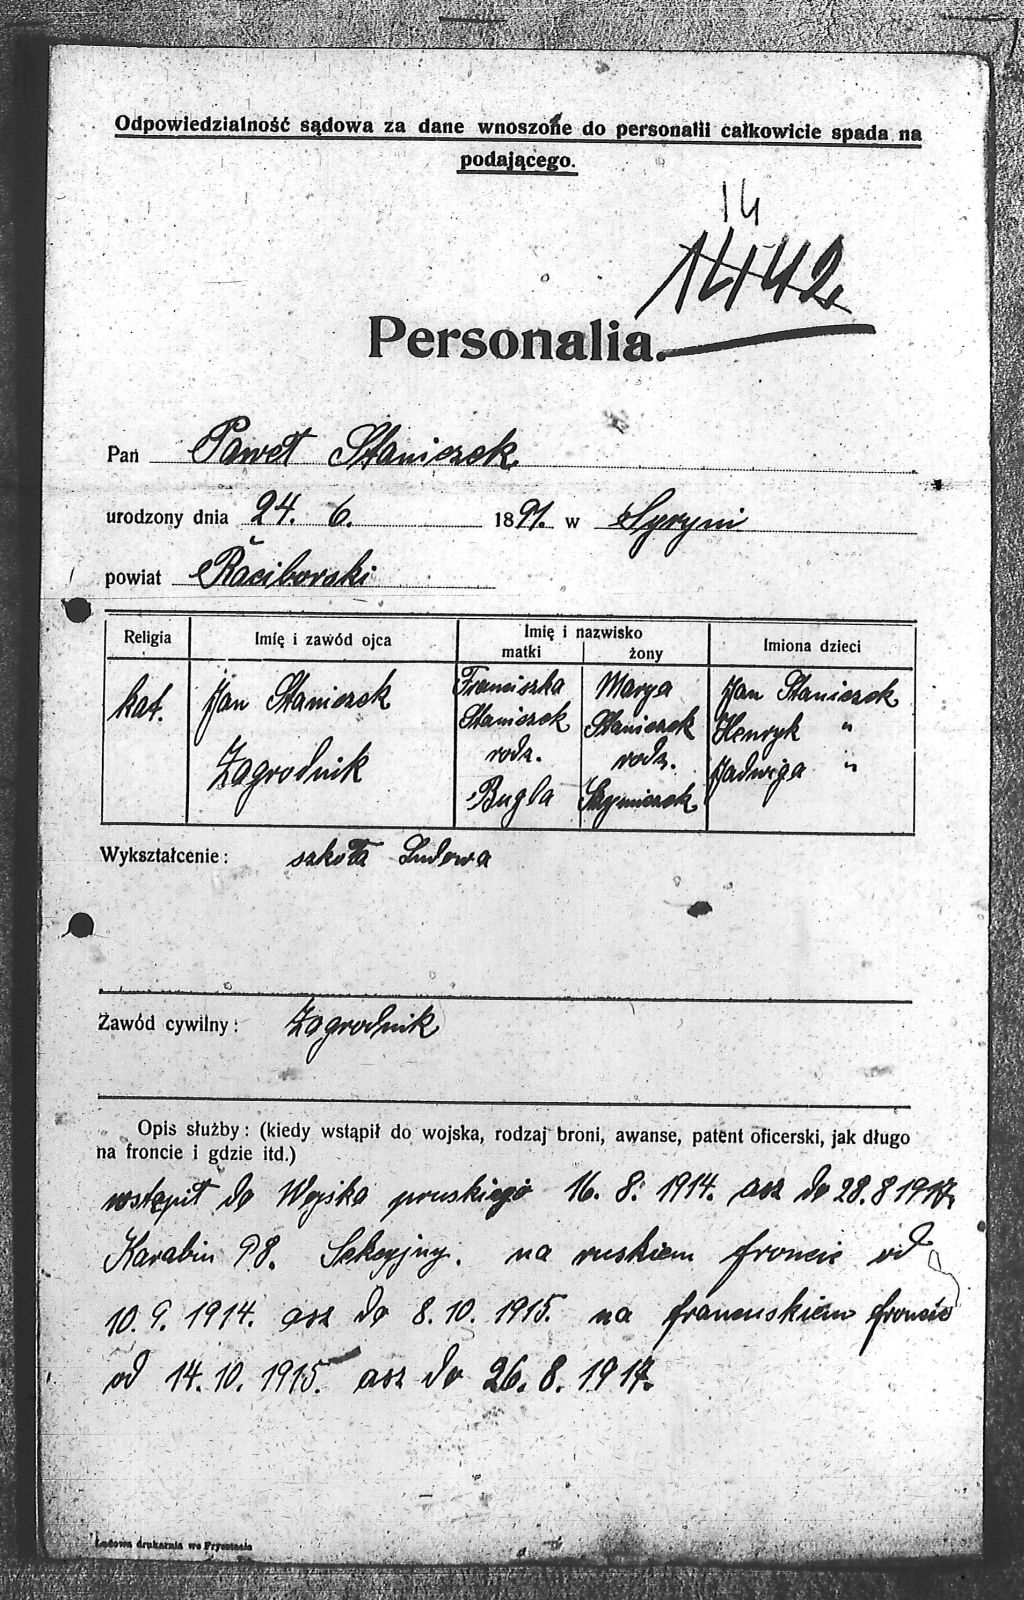 Odpowiedzialność sądowa za dane wnoszone do personalii całkowicie spada na
podającego.
14
14142
Personalia.
Pan Paweł Staniczek
urodzony dnia 24. 6. 1891. w Syryni
powiat Raciborski
Religia
Imię i zawód ojca
Imię i nazwisko
matki
żony
Imiona dzieci
kat.
Jan Staniczek
Zagrodnik
Franciszka
Staniczek
rodz.
Bugla
Marya
Staniczek
rodz.
Szymiczek
Jan Staniczek
Henryk "
Jadwiga "
Wykształcenie: szkoła Ludowa
Zawód cywilny: Zagrodnik
Opis służby: (kiedy wstąpił do wojska, rodzaj broni, awanse, patent oficerski, jak długo
na froncie i gdzie itd.)
wstąpił do Wojska pruskiego 16. 8. 1914. asz do 28. 8 1917.
Karabin 98. Sekcyjny. na ruskiem froncie od
10. 9. 1914. asz do 8. 10. 1915. na francuskiem froncie
od 14. 10. 1915. asz do 26. 8. 1917.
Ludowa drukarnia we Frysztacie